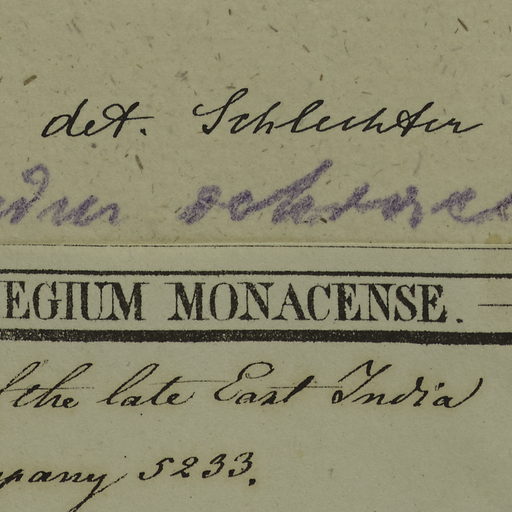 det. Schlechter
EGIUM MONACENSE.
the late East India
pany 5233.